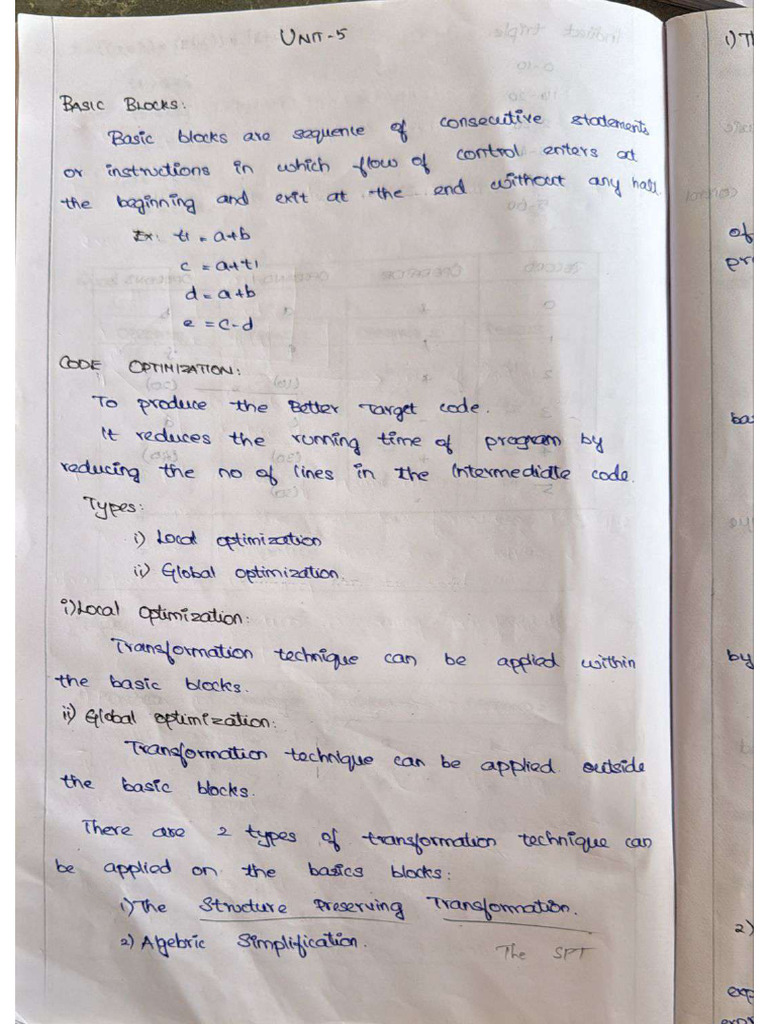 UNIT-5
BASIC BLOCKS:
Basic blocks are sequence of consecutive statements
or instructions in which flow of control enters at
the beginning and exit at the end without any halt.
Ex: t1 = a+b
c = a+t1
d = a+b
e = c-d
CODE OPTIMIZATION:
To produce the Better Target code.
It reduces the running time of program by
reducing the no of lines in the Intermediate code.
Types:
i) Local optimization
ii) Global optimization.
i) Local Optimization:
Transformation technique can be applied within
the basic blocks.
ii) Global optimization:
Transformation technique can be applied outside
the basic blocks.
There are 2 types of transformation technique can
be applied on the basics blocks:
1) The Structure Preserving Transformation.
2) Algebric Simplification.
The SPT
1) Th
of
pr
bas
by
2)
exp